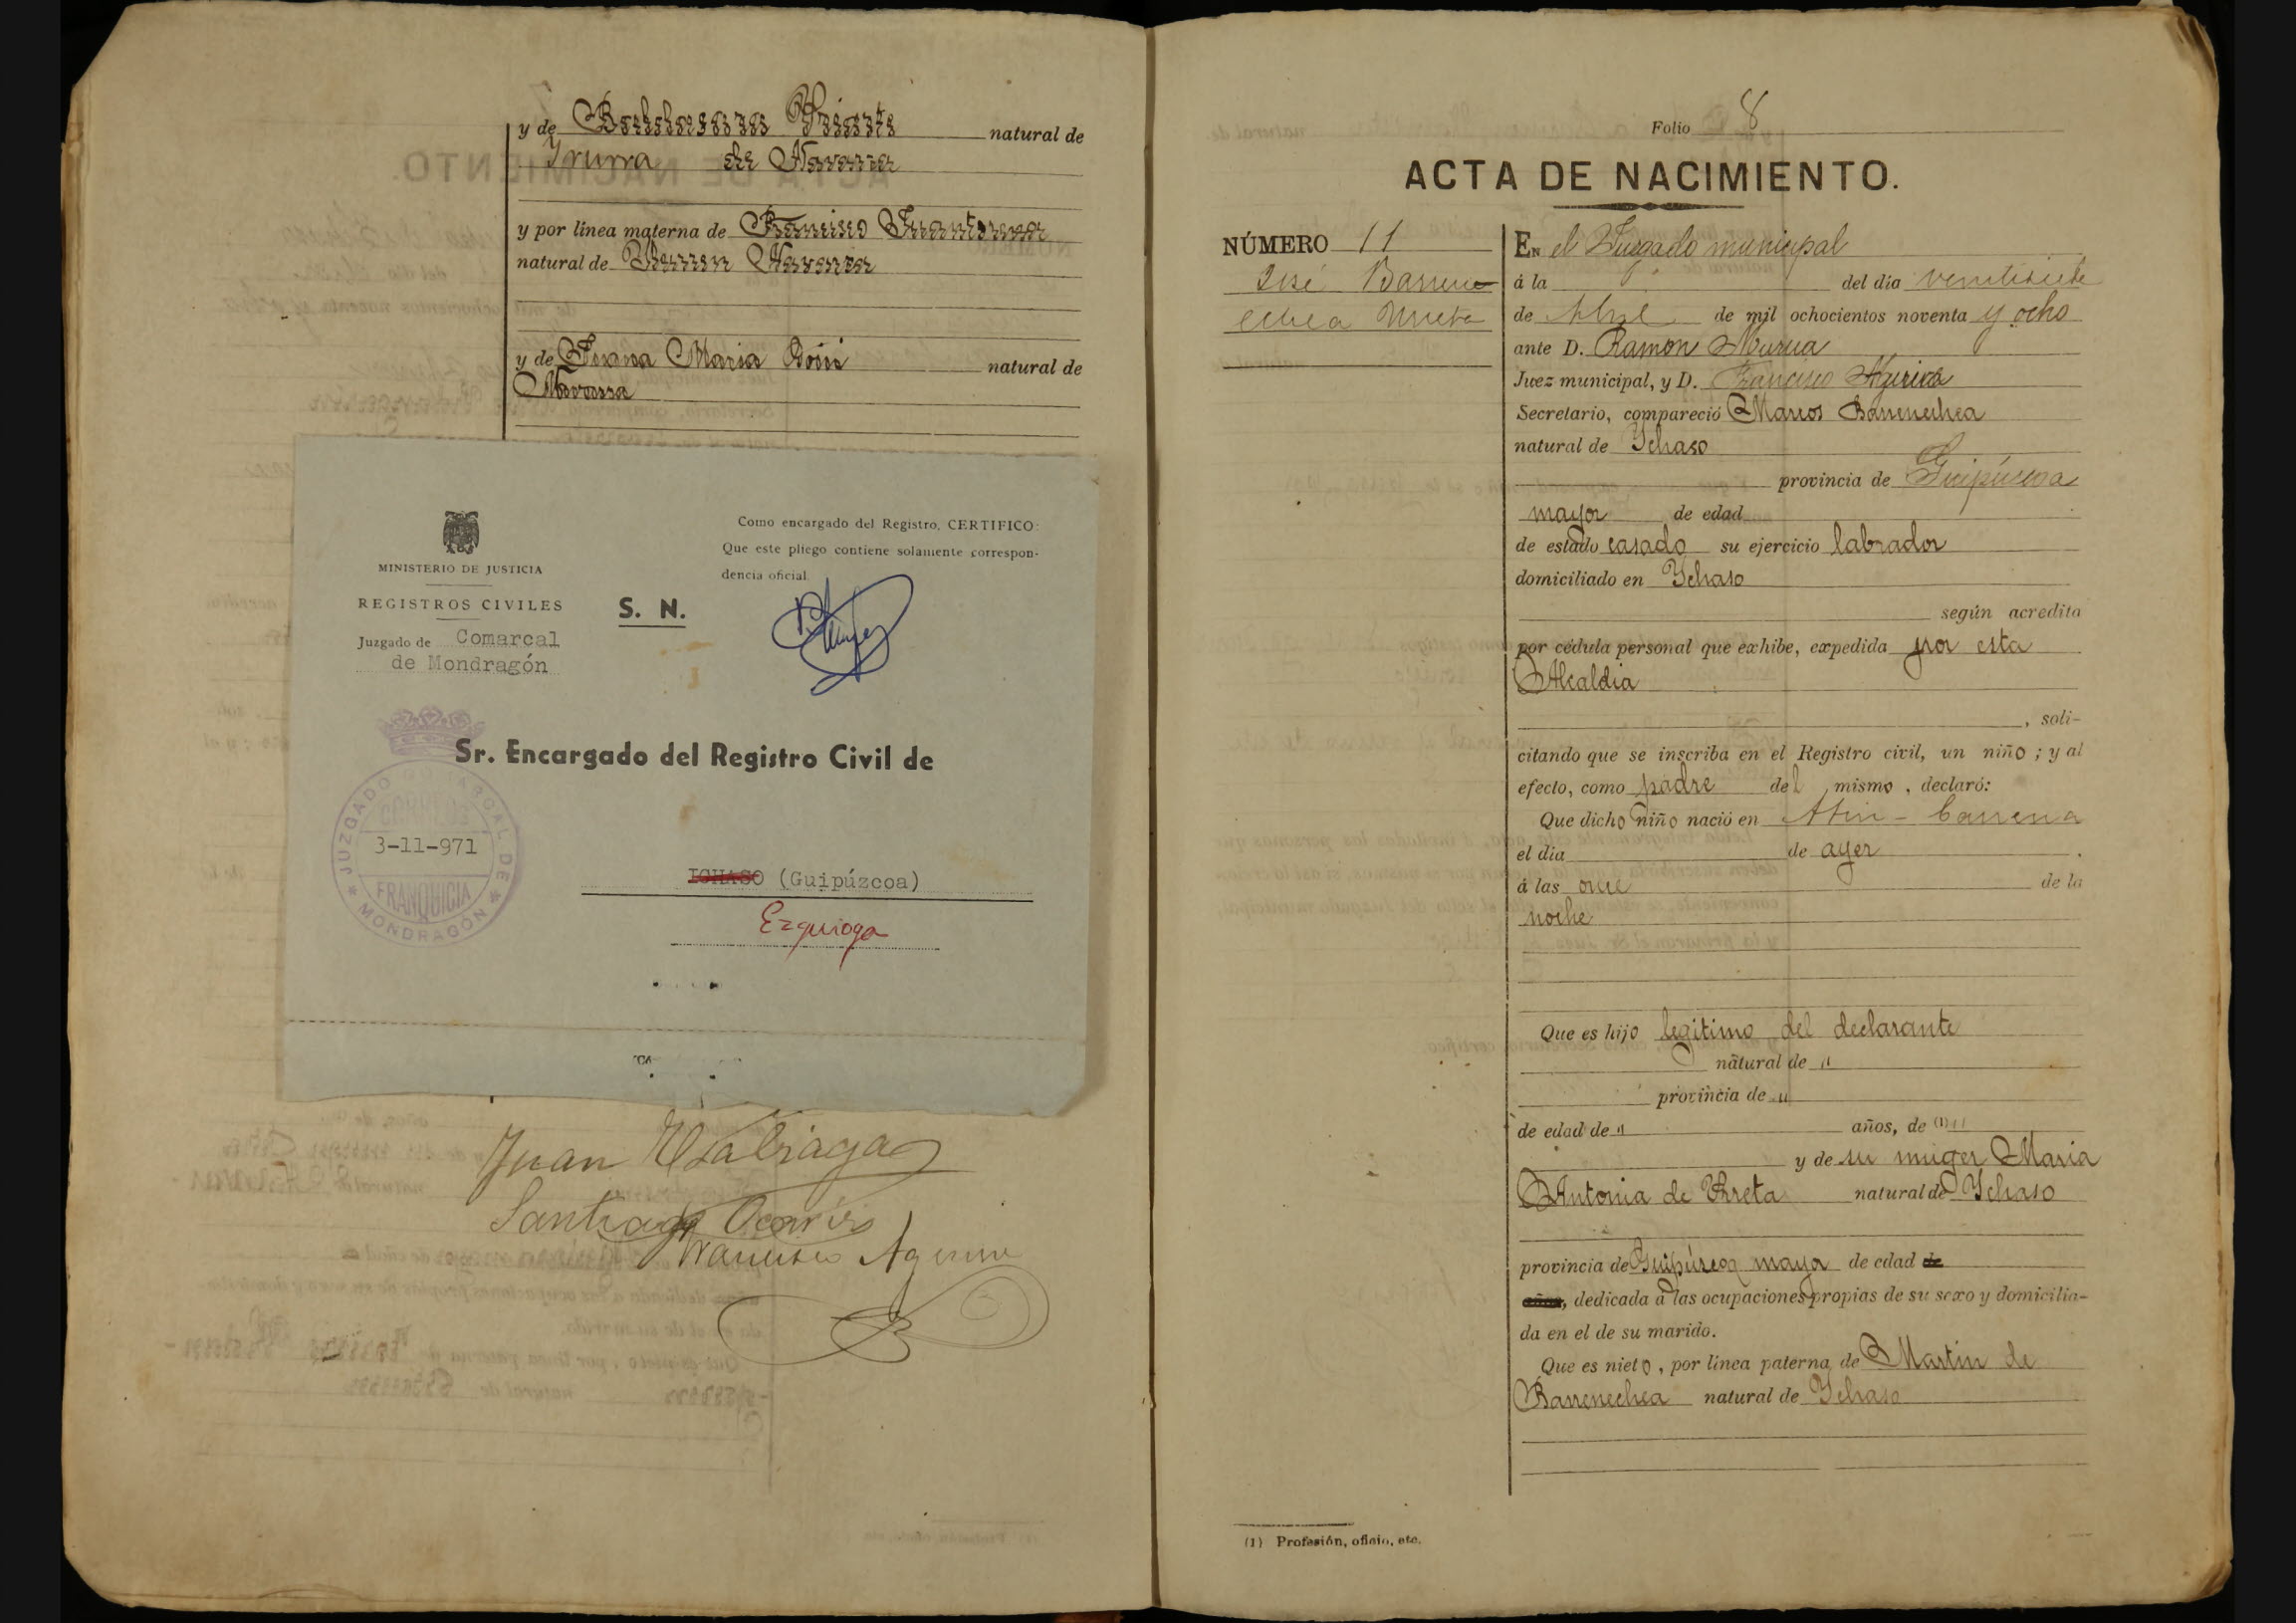 y de natural de
Yrurra de Navarra
y por línea materna de Francisco
natural de Navarra
y de Juana Maria natural de
Navarra
MINISTERIO DE JUSTICIA
REGISTROS CIVILES
Juzgado de Comarcal
de Mondragón
S. N.
Como encargado del Registro, CERTIFICO:
Que este pliego contiene solamente correspon-
dencia oficial.
Sr. Encargado del Registro Civil de
JUZGADO COMARCAL DE
CORREOS
3-11-971
FRANQUICIA
* MONDRAGÓN *
ICHASO (Guipúzcoa)
Ezquioga
Juan
Santiago
Francisco Aguirre
Folio 8
ACTA DE NACIMIENTO.
NÚMERO 11
José Barrene
echea Urreta
EN el Juzgado municipal
á la del dia ventisiete
de Abril de mil ochocientos noventa y ocho
ante D. Ramon
Juez municipal, y D. Francisco Aguirre
Secretario, compareció Marcos Barrenechea
natural de Ychaso
provincia de Guipúzcoa
mayor de edad
de estado casado su ejercicio labrador
domiciliado en Ychaso
según acredita
por cédula personal que exhibe, expedida por esta
Alcaldia
, soli-
citando que se inscriba en el Registro civil, un niño ; y al
efecto, como padre del mismo , declaró:
Que dicho niño nació en barrena
el dia de ayer .
á las once de la
noche
Que es hijo legitimo del declarante
natural de "
provincia de "
de edad de " años, de (1) "
y de su muger Maria
Antonia de Urreta natural de Ychaso
provincia de Guipúzcoa mayor de edad de
años, dedicada a las ocupaciones propias de su sexo y domicilia-
da en el de su marido.
Que es nieto , por línea paterna, de Martin de
Barrenechea natural de Ychaso
(1) Profesión, oficio, etc.